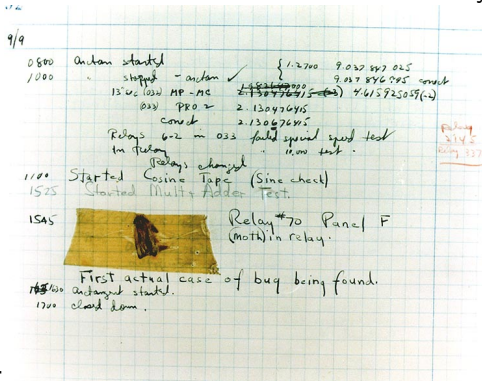 9/9
0800 antan started { 1.2700 9.037 847 025
1000 " stopped - antan ✓ 9.037 846 995 correct
13"uc (032) MP-MC 2.130476415 (-3) 4.615925059(-2)
(033) PRO 2 2.130476415
correct 2.130676415
Relays 6-2 in 033 failed special speed test
in relay " 10,000 test.
Relay
Relays changed
1100 Started Cosine Tape (Sine check)
1525 Started Mult+Adder Test.
1545 Relay #70 Panel F
(moth) in relay.
First actual case of bug being found.
1630 antangent started.
1700 closed down.